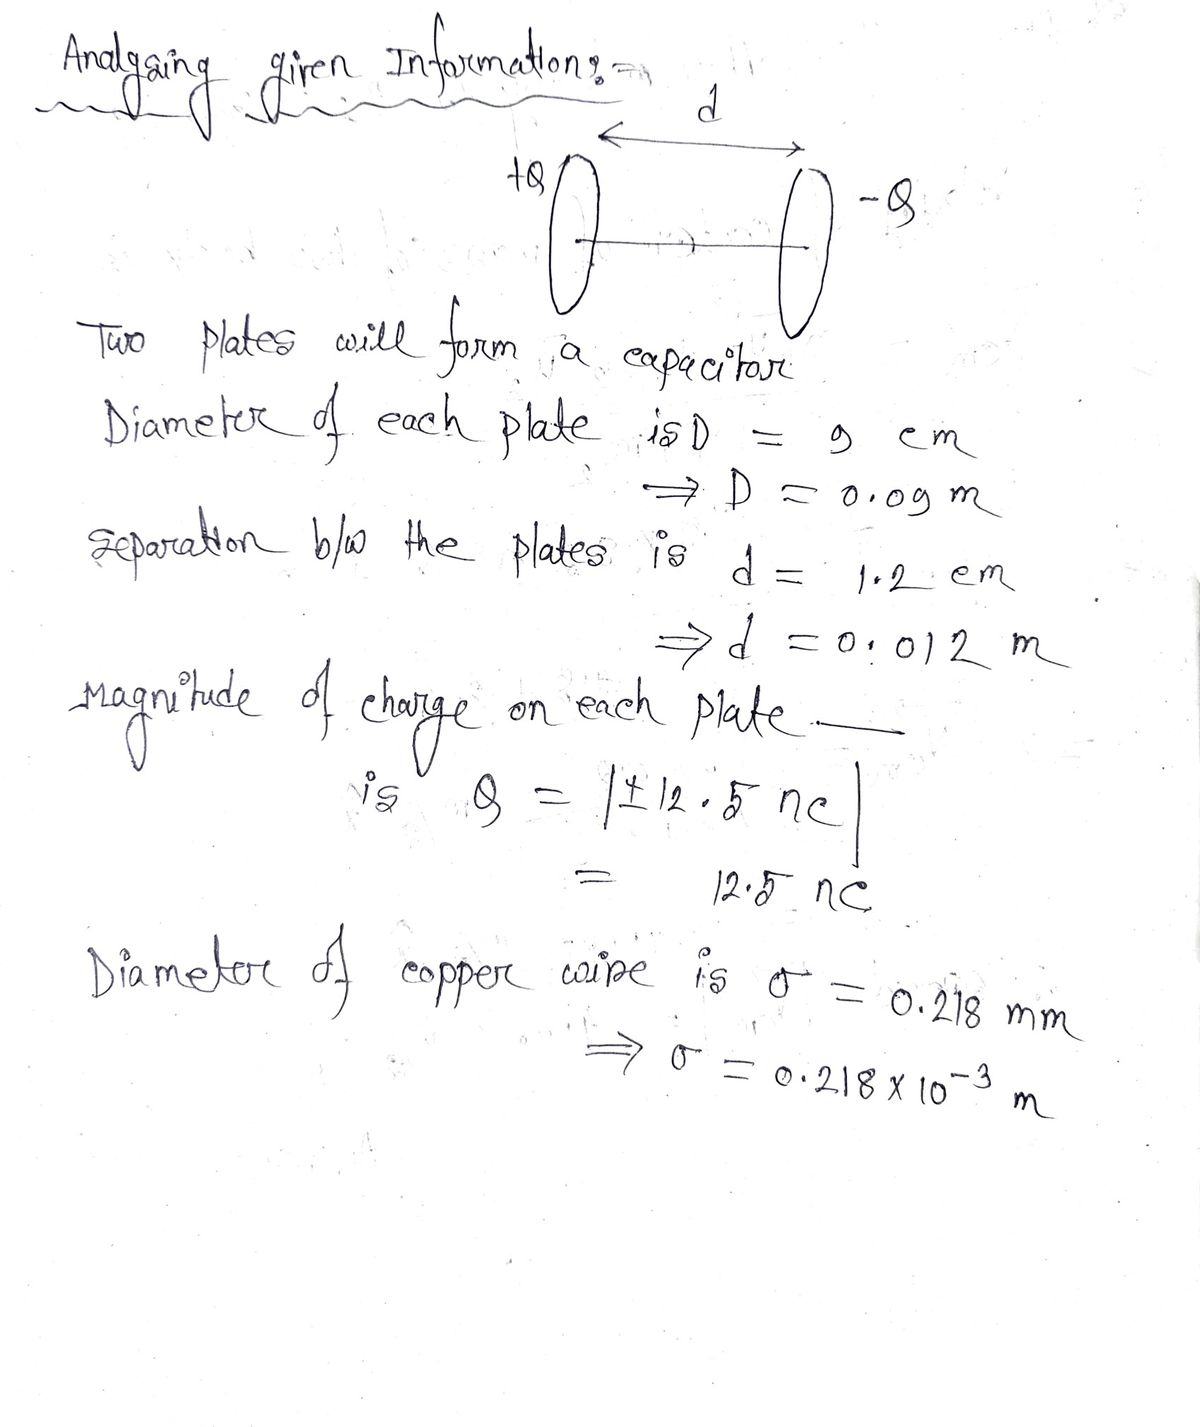 Analyzing given Information:-
d
+Q
-Q
Two plates will form a capacitor
Diameter of each plate is D = 9 cm
⇒ D = 0.09 m
Separation b/w the plates is d = 1.2 cm
⇒ d = 0.012 m
Magnitude of charge on each plate —
is Q = |±12.5 nc|
= 12.5 nc
Diameter of copper wire is σ = 0.218 mm
⇒ σ = 0.218 × 10⁻³ m